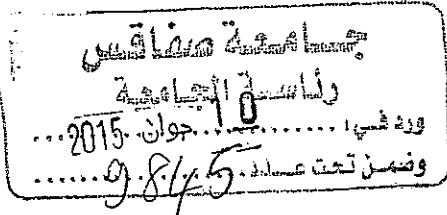 جامعة صفاقس
رئاسة الجامعة
ورد في: 10 جوان 2015
وضمن تحت عدد 9845